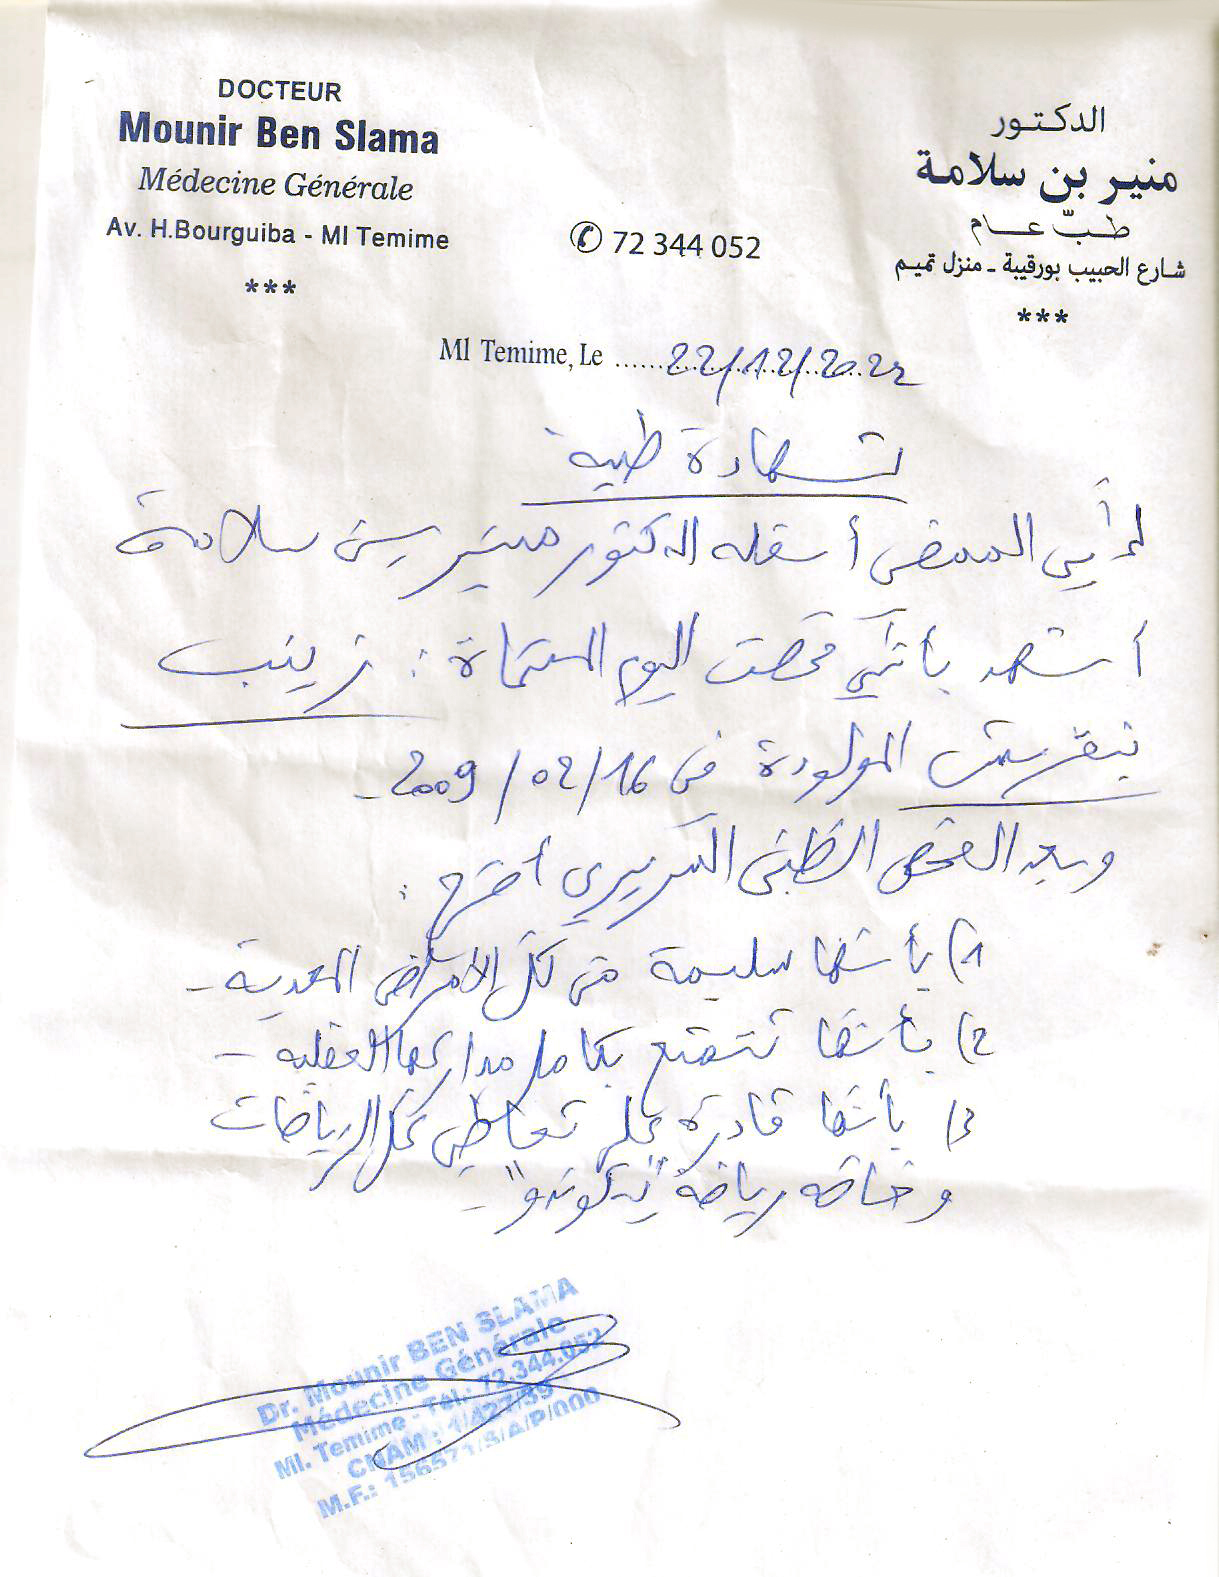 DOCTEUR
Mounir Ben Slama
Médecine Générale
Av. H.Bourguiba - Ml Temime
***
الدكتور
منير بن سلامة
طبّ عام
شارع الحبيب بورقيبة - منزل تميم
***
✆ 72 344 052
Ml Temime, Le ......22/12/2022
شهادة طبية
إني الممضي أسفله الدكتور منير بن سلامة
أشهد بأنّي فحصت اليوم المسماة : زينب
المولودة في 16/02/2009 -
وبعد الفحص الطبي السريري أصرح :
1) بأنها سليمة من كل الأمراض المعدية -
2) بأنها تتمتع بكامل مداركها العقلية -
3) بأنها قادرة على تعاطي كل الرياضات
وخاصة رياضة "تيكوندو" -
Dr. Mounir BEN SLAMA
Médecine Générale
Ml. Temime - Tél.: 72.344.052
CNAM : 1/427/99
M.F.: /A/P/000